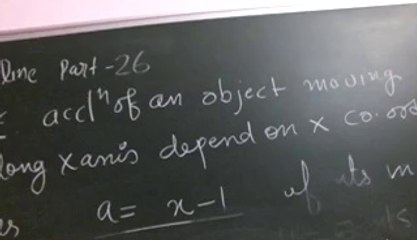 line Part-26
acclⁿ of an object moving
long x axis depend on x co. ord
a= x-1 if its m